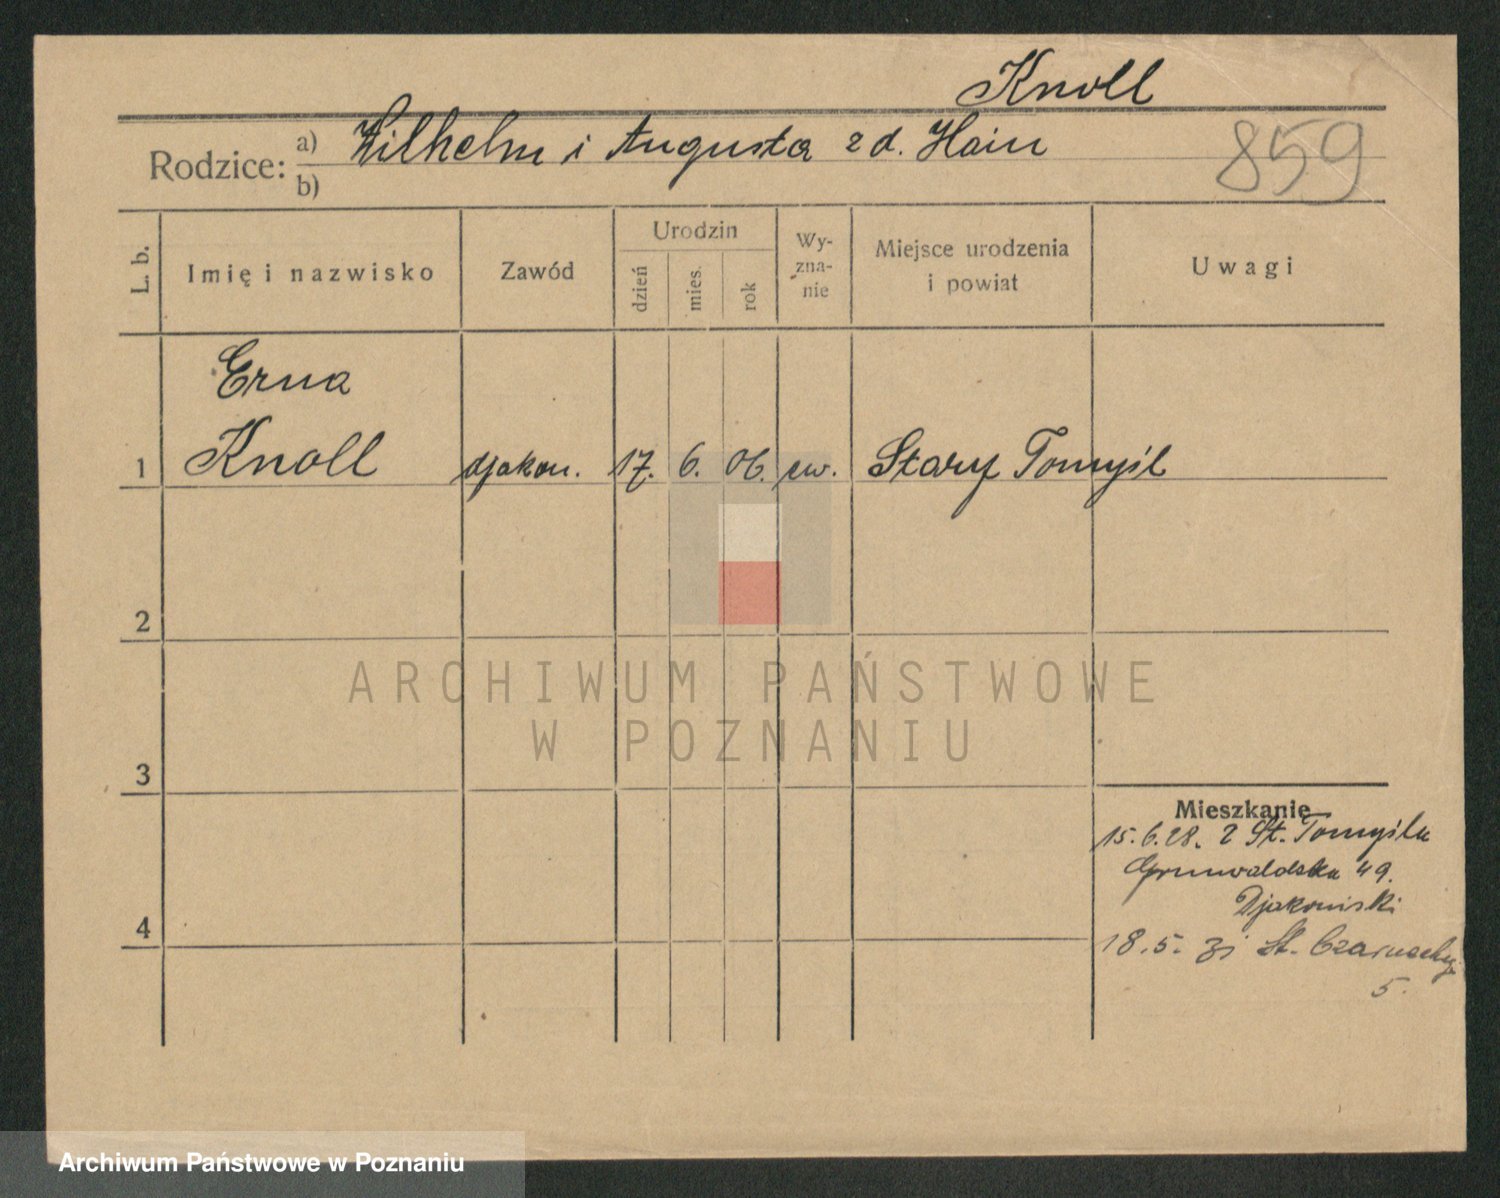 Knoll
Rodzice: a) Wilhelm i Augusta z d. Hain
859
b)
L. b. Imię i nazwisko Zawód Urodzin dzień mies. rok Wy-zna-nie Miejsce urodzenia i powiat Uwagi
Erna
1 Knoll djakon. 17. 6. 06. ew. Stary Tomyśl
2
3
4
Mieszkanie
15.6.28. z St. Tomyśla
Grunwaldska 49.
18.5. St.
5.
ARCHIWUM PAŃSTWOWE
W POZNANIU
Archiwum Państwowe w Poznaniu